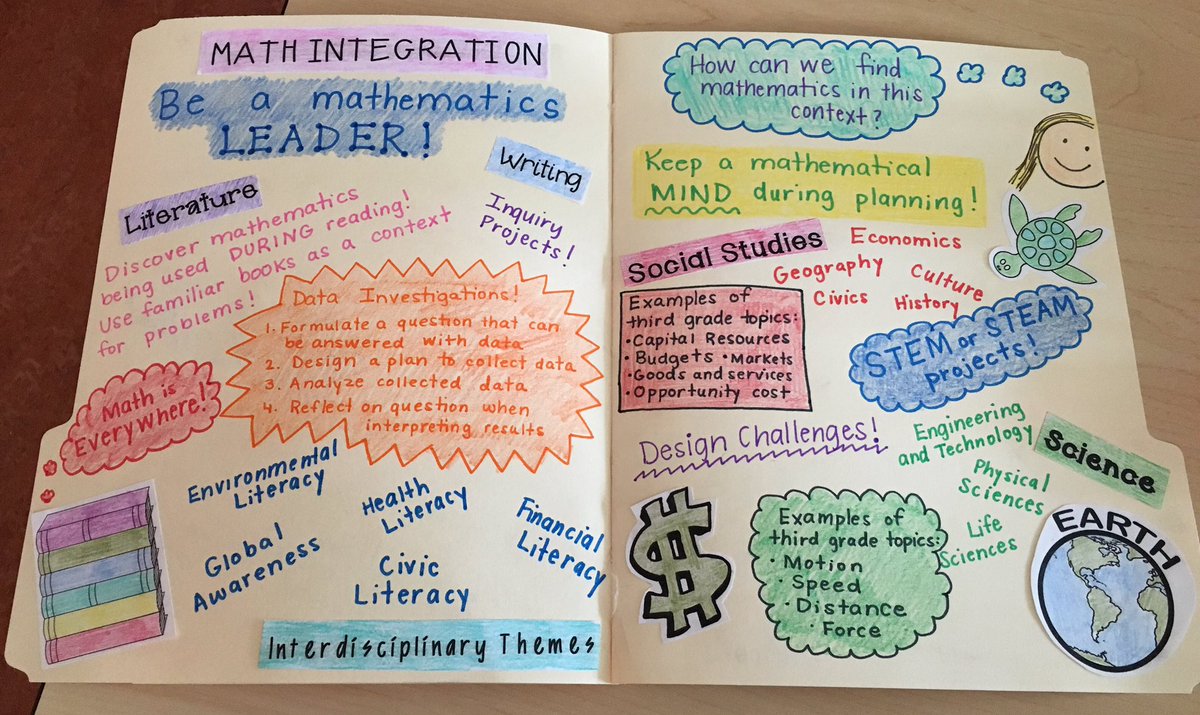 MATH INTEGRATION
Be a mathematics
LEADER!
Writing
Inquiry
Projects!
Literature
Discover mathematics
being used DURING reading!
Use familiar books as a context
for problems!
Data Investigations!
1. Formulate a question that can
be answered with data
2. Design a plan to collect data
3. Analyze collected data
4. Reflect on question when
interpreting results
Math is
Everywhere!
Environmental
Literacy
Health
Literacy
Financial
Literacy
Global
Awareness
Civic
Literacy
Interdisciplinary Themes
How can we find
mathematics in this
context?
Keep a mathematical
MIND during planning!
Social Studies
Economics
Geography
Culture
Civics
History
Examples of
third grade topics:
• Capital Resources
• Budgets • Markets
• Goods and services
• Opportunity cost
STEM or STEAM
projects!
Design Challenges!
Engineering
and Technology
Science
Physical
Sciences
Life
Sciences
Examples of
third grade topics:
• Motion
• Speed
• Distance
• Force
EARTH